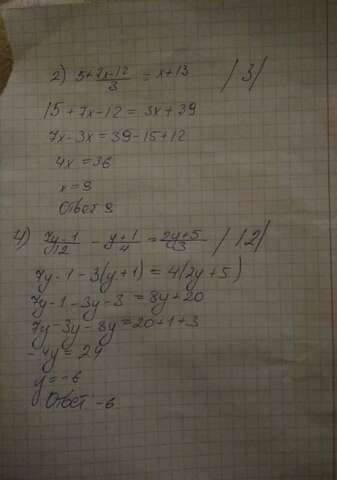 2) 5+7x-12/3 = x+13 /3/
15+7x-12=3x+39
7x-3x=39-15+12
4x=36
x=9
Ответ 9
4) 7y-1/12 - y+1/4 = 2y+5/3 /12/
7y-1-3(y+1)=4(2y+5)
7y-1-3y-3=8y+20
7y-3y-8y=20+1+3
-4y=24
y=-6
Ответ -6